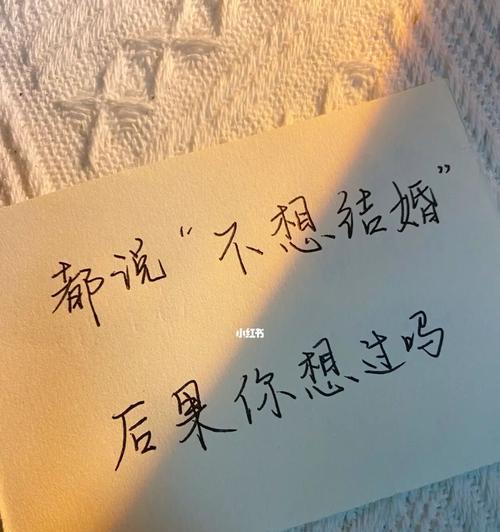 都说“不想结婚”
小红书
后果你想过吗